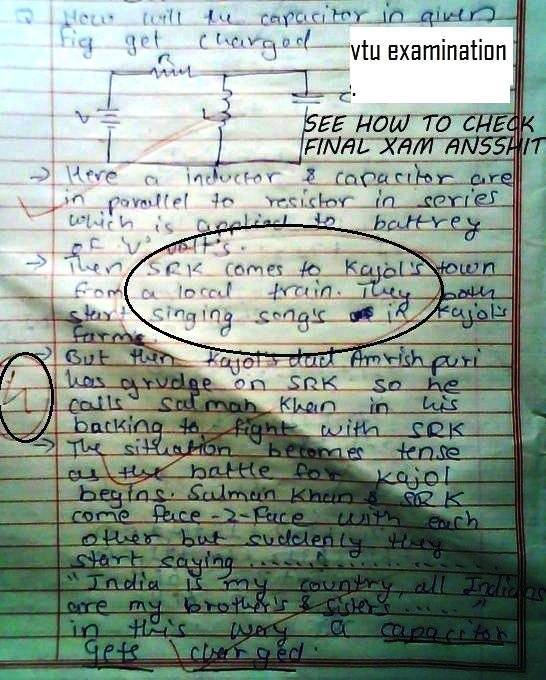 Q How will the capacitor in given
fig get charged
vtu examination
R
V
L
C
SEE HOW TO CHECK
FINAL XAM ANSSHIT
→ Here a inductor & capacitor are
in parallel to resistor in series
which is applied to battrey
of 'V' volt's.
→ Then SRK comes to Kajol's town
from a local train. They both
start singing song's in Kajol's
farms.
→ But then Kajol's dad Amrish puri
has grudge on SRK so he
calls Salman Khan in his
backing to fight with SRK
→ The situation becomes tense
as the battle for Kajol
begins. Salman Khan & SRK
come face-2-face with each
other but suddenly they
start saying ........................
"India is my country, all Indians
are my brother's & sister's ..... "
in this way a capacitor
gets charged.